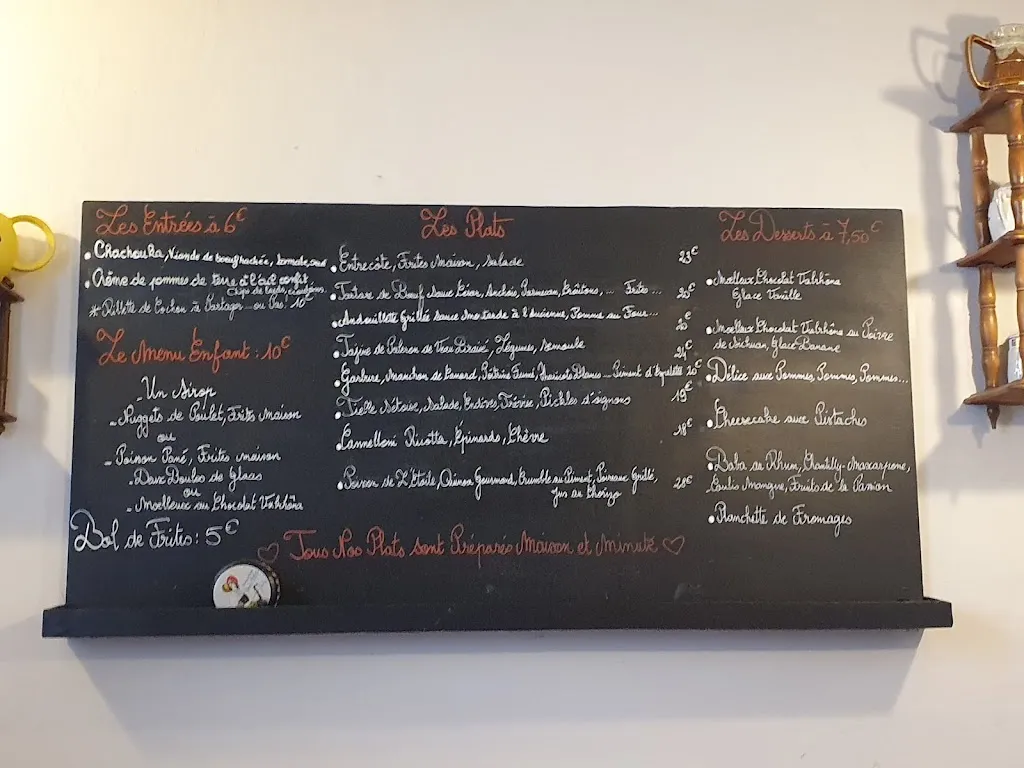 Les Entrées à 6€
• Chachouka, Viande de boeuf hachée, tomate, oeuf
• Crème de pommes de terre à l'ail confit,
Chips de lard, croûtons
* Rillette de Cochon à Partager ... ou Pas! 10€
Le Menu Enfant : 10€
- Un Sirop
- Nuggets de Poulet, Frites Maison
ou
- Poisson Pané, Frites maison
- Deux Boules de Glace
ou
- Moelleux au Chocolat Valrhôna
Bol de Frites : 5€
Les Plats
• Entrecôte, Frites Maison, Salade 23€
• Tartare de Boeuf Sauce César, Anchois, Parmesan, Croûtons, ... Frites ... 20€
• Andouillette Grillée Sauce Moutarde à l'Ancienne, Pomme au Four... 20€
• Tajine de Paleron de Veau Braisé, Légumes, Semoule 24€
• Garbure, Manchon de Canard, Poitrine Fumé, Haricots Blancs ... Piment d'Espelette 20€
• Tielle Sétoise, Salade, Endives, Trévise, Pickles d'oignons 19€
• Cannelloni Ricotta, Epinards, Chèvre 18€
• Poisson de L'Etoile, Quinoa Gourmand, Crumble au Piment, Poireau Grillé, 28€
Jus au Chorizo
Les Desserts à 7,50€
• Moelleux Chocolat Valrhôna
Glace Vanille
• Moelleux Chocolat Valrhôna au Poivre
de Sichuan, Glace Banane
• Délice aux Pommes, Pommes, Pommes...
• Cheesecake aux Pistaches
• Baba au Rhum, Chantilly-Mascarpone,
Coulis Mangue, Fruits de la Passion
• Planchette de Fromages
♡ Tous Nos Plats sont Préparés Maison et Minute ♡